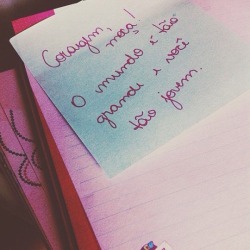 Coragem,
moça!
O mundo é tão
grande e você
tão jovem.